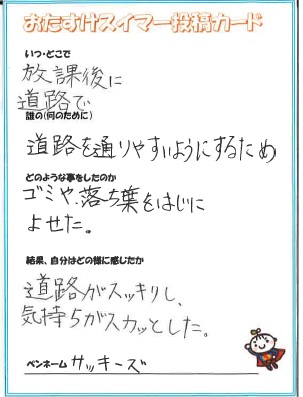 おたすけスイマー投稿カード
いつ・どこで
放課後に
道路で
誰の(何のために)
道路を通りやすいようにするため
どのような事をしたのか
ゴミや、落ち葉をはじに
よせた。
結果、自分はどの様に感じたか
道路がスッキリし、
気持ちがスカッとした。
ペンネーム サッキーズ